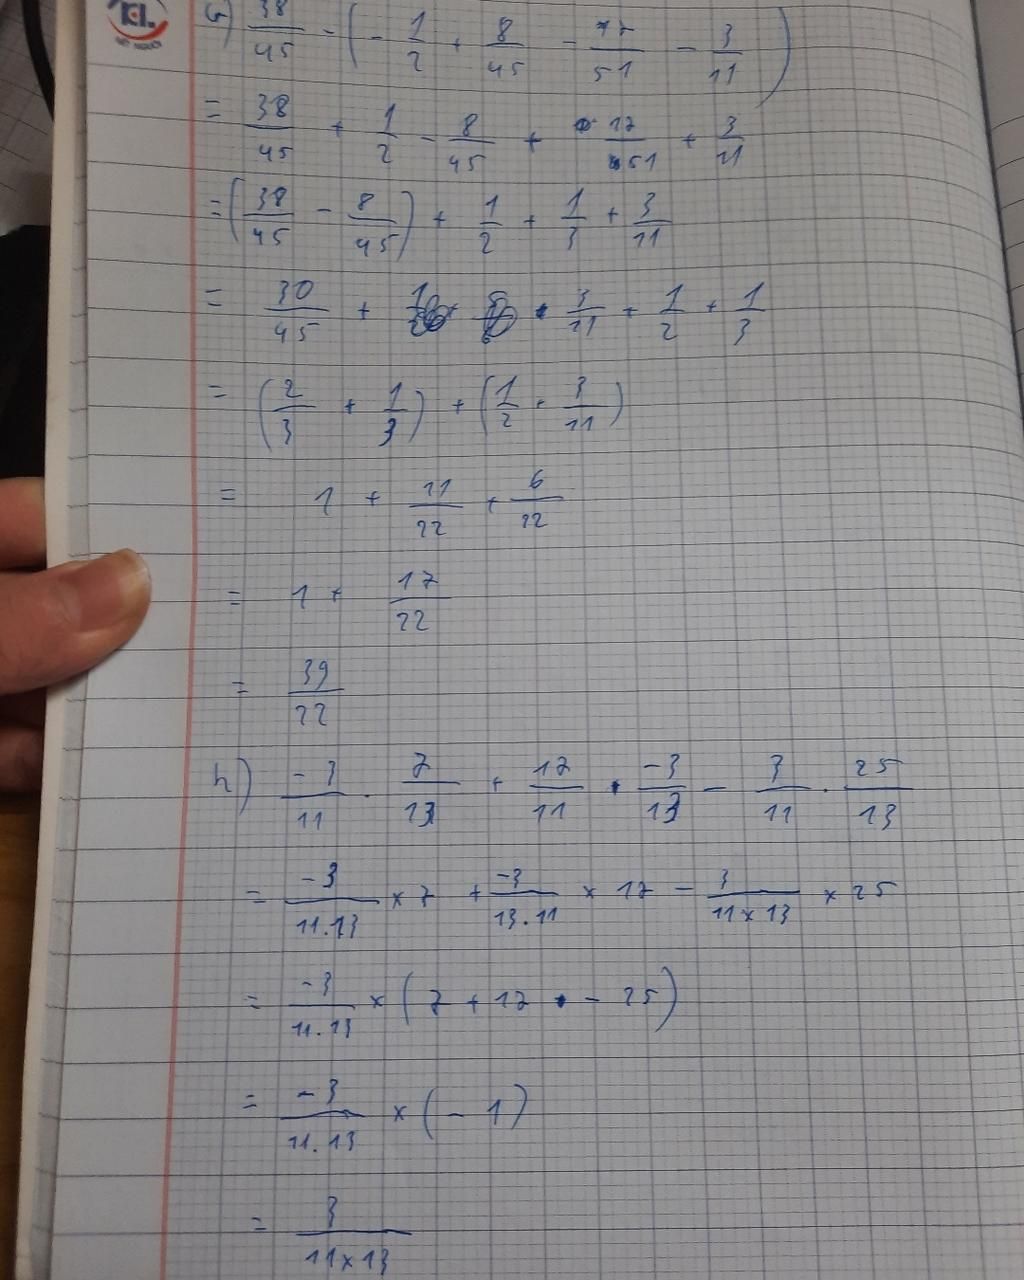 G) 38/45 - (- 1/2 + 8/45 - 17/51 - 3/11)
= 38/45 + 1/2 - 8/45 + 17/51 + 3/11
= (38/45 - 8/45) + 1/2 + 1/3 + 3/11
= 30/45 + 3/11 + 1/2 + 1/3
= (2/3 + 1/3) + (1/2 + 3/11)
= 1 + 11/22 + 6/22
= 1 + 17/22
= 39/22
h) -3/11 . 7/13 + 17/11 . -3/13 - 3/11 . 25/13
= -3/11.13 × 7 + -3/13.11 × 17 - 3/11×13 × 25
= -3/11.13 × (7 + 17 - 25)
= -3/11.13 × (- 1)
= 3/11×13